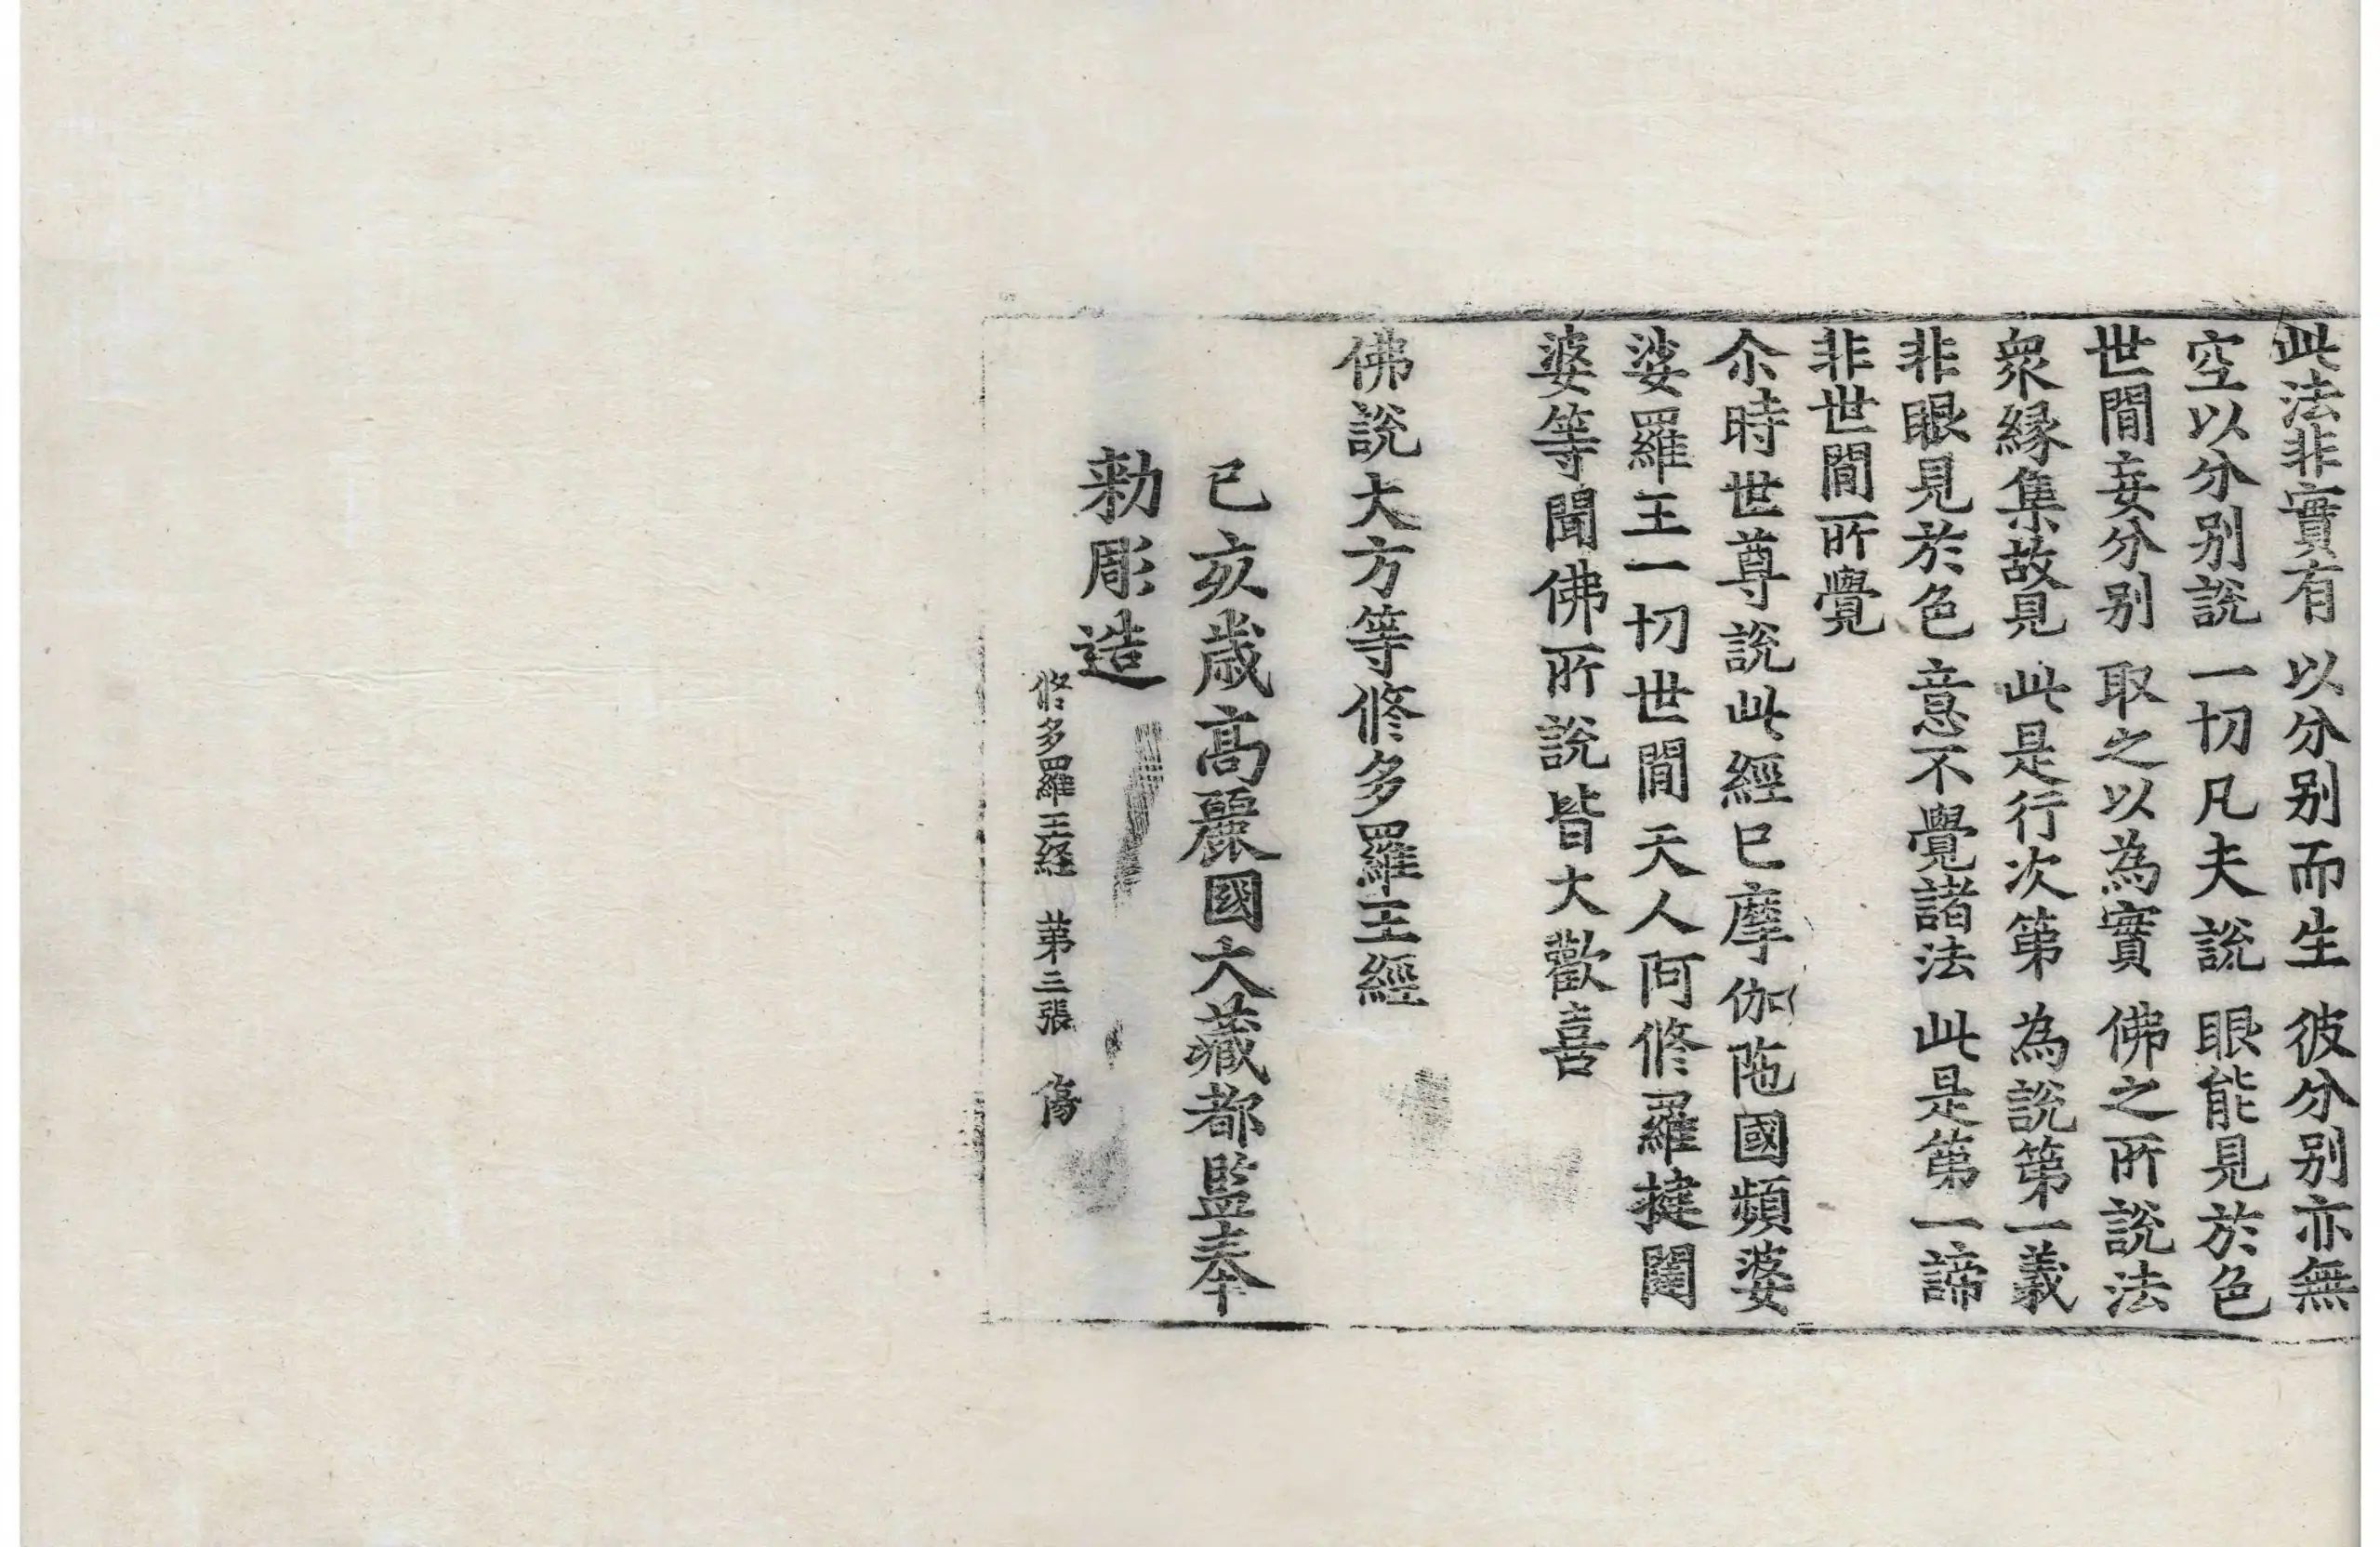 此法非實有　以分别而生　彼分别亦無
空以分别說　一切凡夫說　眼能見於色
世間妄分别　取之以為實　佛之所說法
衆緣集故見　此是行次第　為說第一義
非眼見於色　意不覺諸法　此是第一諦
非世間所覺
尒時世尊說此經已摩伽陁國頻婆
娑羅王一切世間天人阿修羅揵闥
婆等聞佛所說皆大歡喜
佛說大方等修多羅王經
己亥歲高麗國大藏都監奉
勑彫造
修多羅王経　苐三張　傷